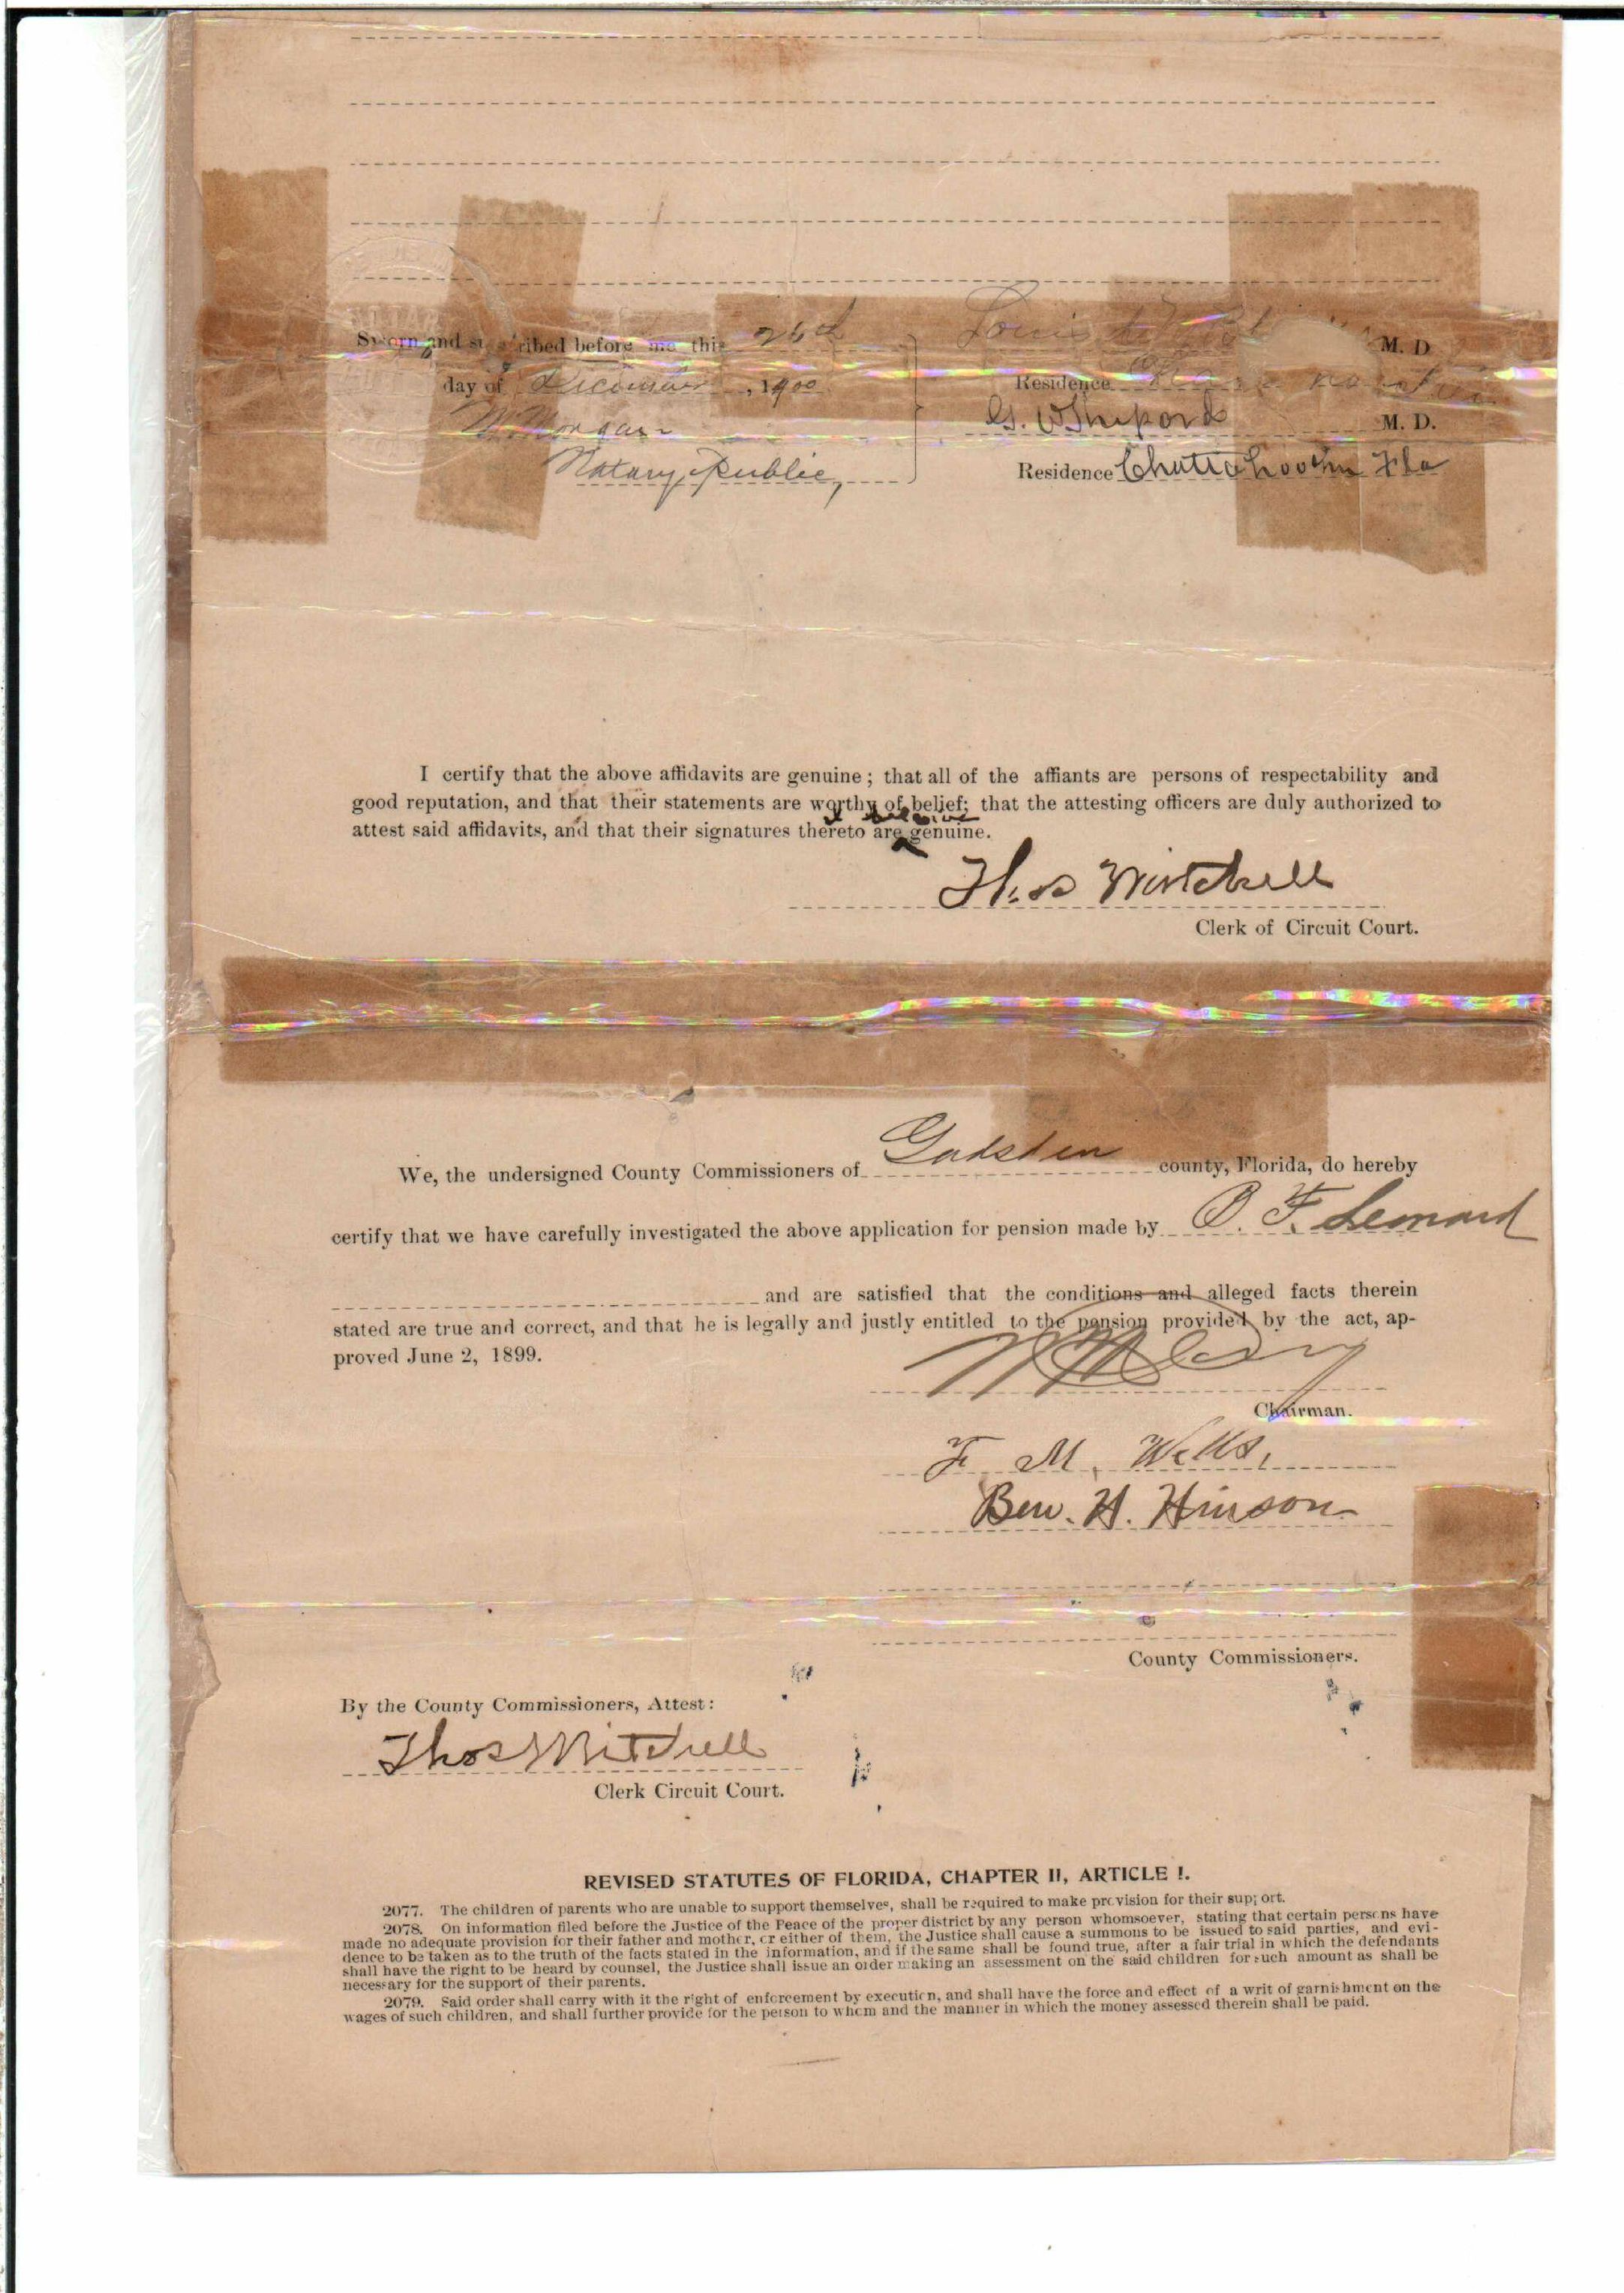 Sworn and subscribed before me this 26th
day of December, 1900
W Morgan
Notary Public,
Louis M. D.
Residence
G. W M. D.
Residence Chattahoochee Fla
I certify that the above affidavits are genuine; that all of the affiants are persons of respectability and
good reputation, and that their statements are worthy of belief; that the attesting officers are duly authorized to
I believe
attest said affidavits, and that their signatures thereto are genuine.
Thos Mitchell
Clerk of Circuit Court.
We, the undersigned County Commissioners of Gadsden county, Florida, do hereby
certify that we have carefully investigated the above application for pension made by O. F. Leonard
and are satisfied that the conditions and alleged facts therein
stated are true and correct, and that he is legally and justly entitled to the pension provided by the act, ap-
proved June 2, 1899.
Chairman.
F. M. Wells,
Ben. H. Hinson
County Commissioners.
By the County Commissioners, Attest:
Thos Mitchell
Clerk Circuit Court.
REVISED STATUTES OF FLORIDA, CHAPTER II, ARTICLE I.
2077. The children of parents who are unable to support themselves, shall be required to make provision for their support.
2078. On information filed before the Justice of the Peace of the proper district by any person whomsoever, stating that certain persons have
made no adequate provision for their father and mother, or either of them, the Justice shall cause a summons to be issued to said parties, and evi-
dence to be taken as to the truth of the facts stated in the information, and if the same shall be found true, after a fair trial in which the defendants
shall have the right to be heard by counsel, the Justice shall issue an order making an assessment on the said children for such amount as shall be
necessary for the support of their parents.
2079. Said order shall carry with it the right of enforcement by execution, and shall have the force and effect of a writ of garnishment on the
wages of such children, and shall further provide for the person to whom and the manner in which the money assessed therein shall be paid.